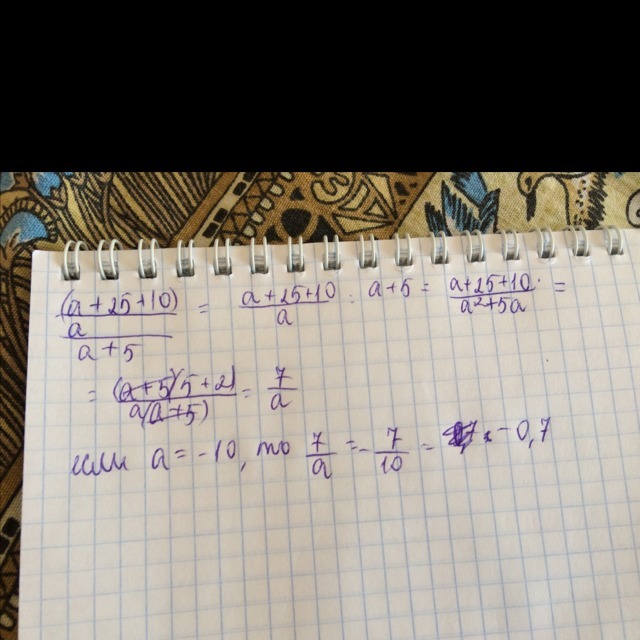 (a + 25+10) / a / a + 5 = a+25+10 / a : a+5 = a+25+10 / a²+5a =
= (a+5)(5+2) / a(a+5) = 7 / a
если a = -10, то 7 / a = - 7 / 10 = -0,7